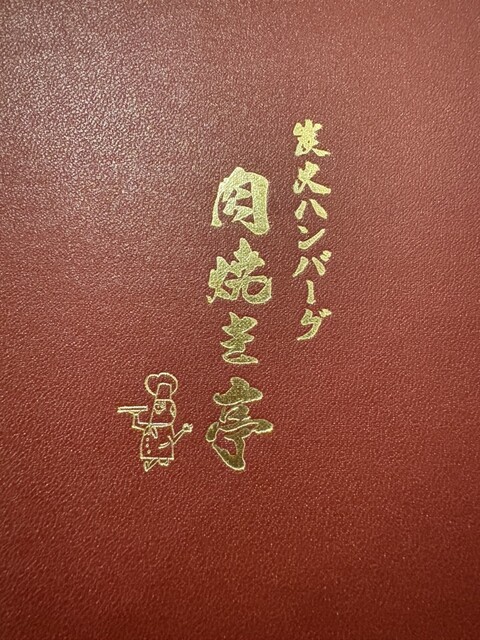 炭火ハンバーグ
肉焼き亭